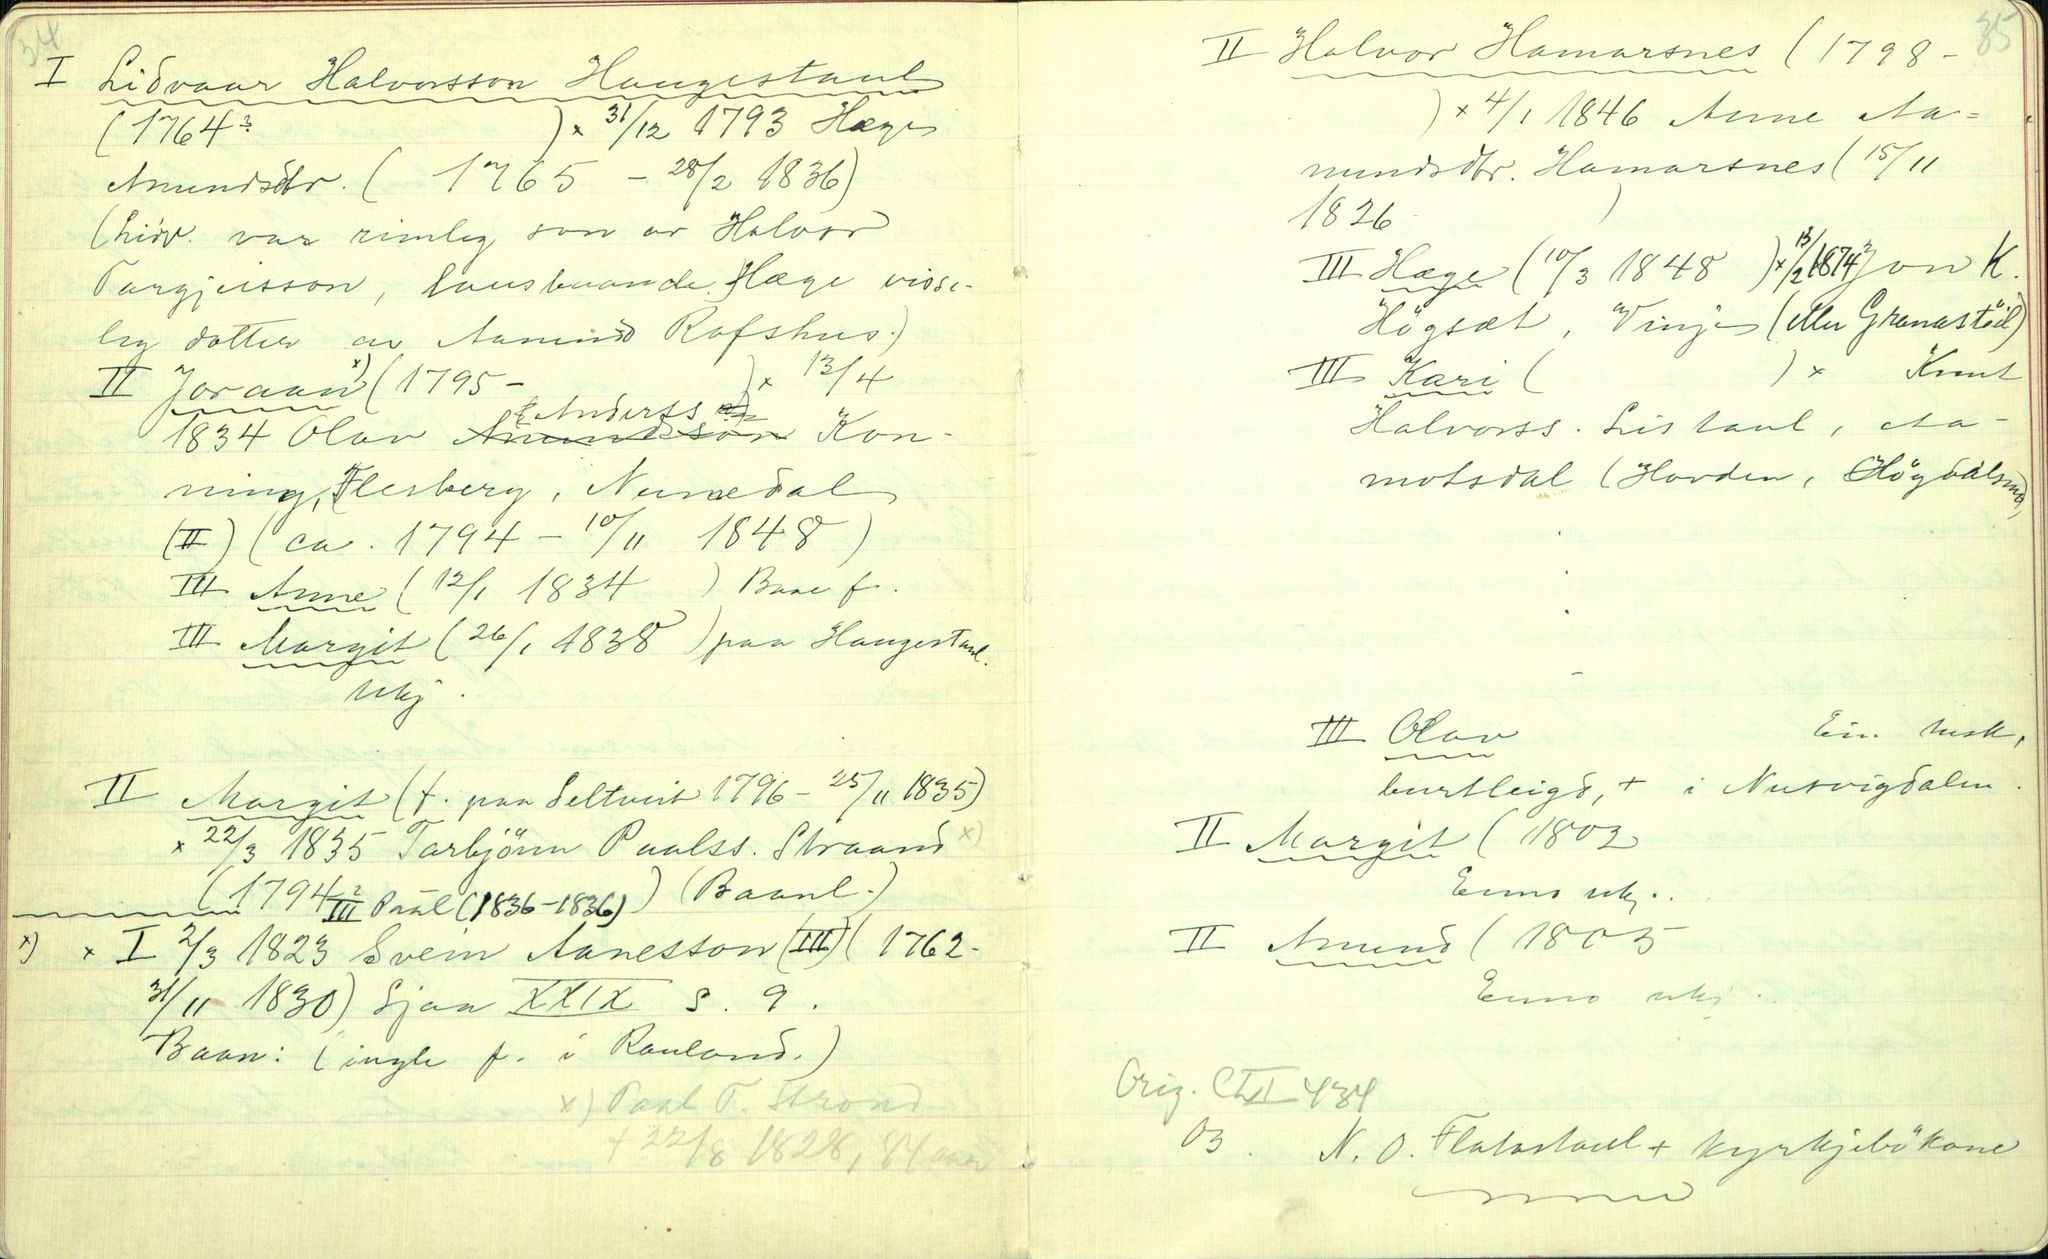 34
I Lidvaar Halvorsson Haugestaul
(1764? ) × 31/12 1793 Hæge
Amundsdtr. ( 1765 – 28/2 1836)
(Lidv. var rimleg son av Halvor
Targjeisson, lausbuande. Hæge visse-
leg dotter av Aamund Rafshus.)
II Joraan x) (1795 – ) × 13/4
1834 Olav Anderss. Kon-
ning, Flesberg, Numedal
(II) (ca. 1794 – 10/11 1848)
III Anne (12/1 1834 ) Baae f.
III Margit (26/1 1838 ) paa Haugestaul.
Ukj.
II Margit (f. paa Seltveit 1796 – 25/11 1835)
× 22/3 1835 Tarbjönn Paalss. Straand x)
(1794? ) (Baanl.)
III Paal (1836–1836)
x) × I 2/3 1823 Svein Aanesson (III) (1762-
31/11 1830) Sjaa XXIX s. 9.
Baan: (ingle f. i Rauland.)
x) Paal T. Strond
+ 22/8 1828, 84 aar
35
II Halvor Hamarsnes (1798 –
) × 4/1 1846 Anne Aa-
mundsdtr. Hamarsnes (15/11
1826 )
III Hæge (10/3 1848 ) × 13/2 1874? Jon K.
Högsæt, Vinje (eller Granastöil)
III Kari ( ) × Knut
Halvorss. Listaul, Aa-
motsdal (Hovden, Högdalsmo)
III Olav Ein husk,
burtleigd, + i Nutvigdalen.
II Margit (1802
Enno ukj.
II Amund (1805
Enno ukj.
Orig. CLII 434
03. N. O. Flatastaul + kyrkjebökane